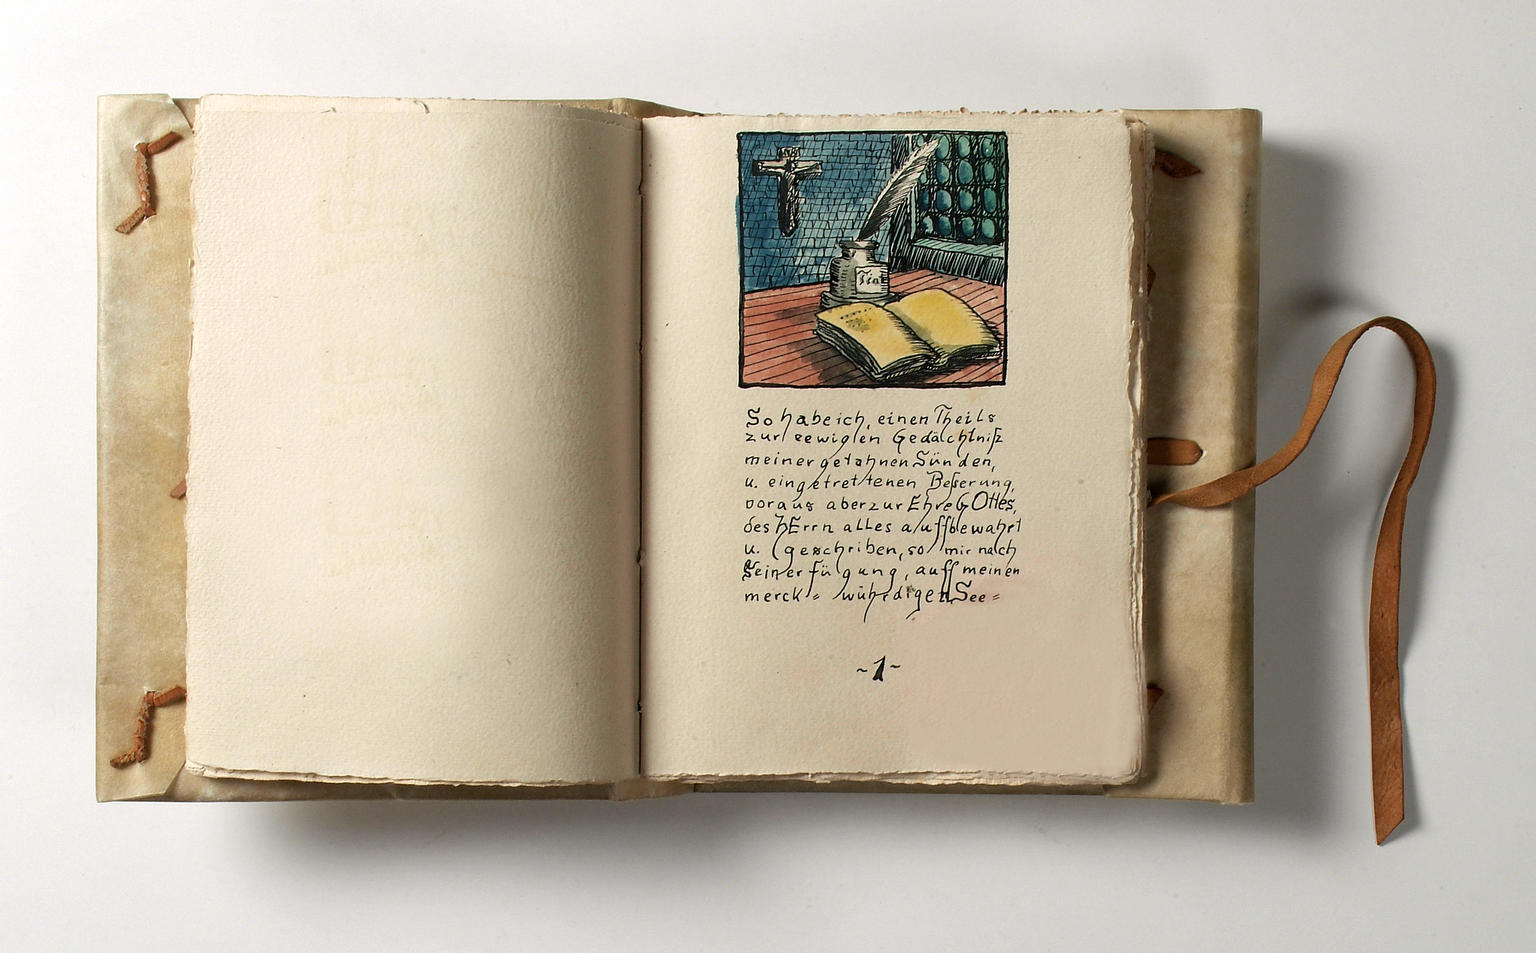 INRI
Tint
So habe ich, einen Theils
zur eewigen Gedächtniß
meiner getahnen Sünden,
u. eingetrettenen Beßerung,
voraus aber zur Ehre GOttes,
des HErrn alles auffbewahrt
u. geschriben, so mir nach
Seiner fügung, auff meinen
merck= würdigen See=
~1~